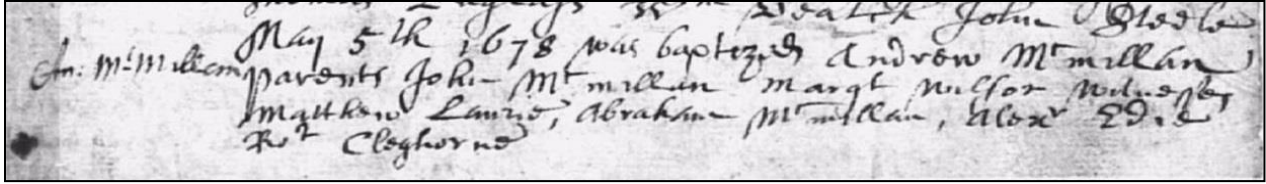 John Steele
An: McMillan May 5th 1678 was baptized Andrew Mcmillan
parents John Mcmillan Margt Wilson witneses
Matthew Laurie, Abraham Mcmillan, Alexr Edie
Rot Cleghorne